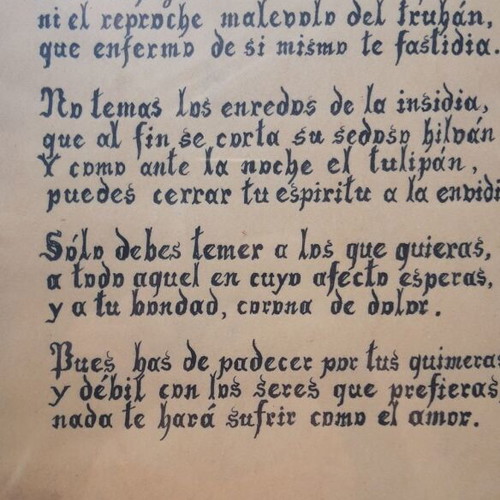 ni el reproche malevolo del truhán,
que enfermo de si mismo te fastidia.
No temas los enredos de la insidia,
que al fin se corta su sedoso hilván
Y como ante la noche el tulipán,
puedes cerrar tu espiritu a la envidi
Sólo debes temer a los que quieras,
a todo aquel en cuyo afecto esperas,
y a tu bondad, corona de dolor.
Pues has de padecer por tus quimeras
y débil con los seres que prefieras,
nada te hará sufrir como el amor.